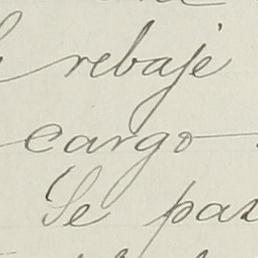 rebaje
cargo
Se